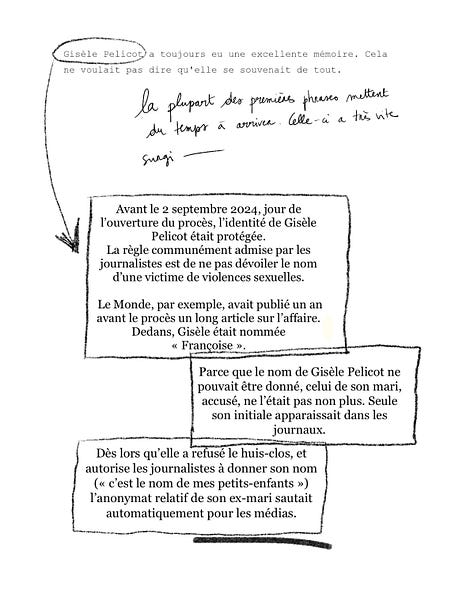 Gisèle Pelicot a toujours eu une excellente mémoire. Cela
ne voulait pas dire qu'elle se souvenait de tout.
la plupart des premières phrases mettent
du temps à arriver. Celle-ci a très vite
surgi —
Avant le 2 septembre 2024, jour de
l'ouverture du procès, l'identité de Gisèle
Pelicot était protégée.
La règle communément admise par les
journalistes est de ne pas dévoiler le nom
d'une victime de violences sexuelles.
Le Monde, par exemple, avait publié un an
avant le procès un long article sur l'affaire.
Dedans, Gisèle était nommée
« Françoise ».
Parce que le nom de Gisèle Pelicot ne
pouvait être donné, celui de son mari,
accusé, ne l'était pas non plus. Seule
son initiale apparaissait dans les
journaux.
Dès lors qu'elle a refusé le huis-clos, et
autorise les journalistes à donner son nom
(« c'est le nom de mes petits-enfants »)
l'anonymat relatif de son ex-mari sautait
automatiquement pour les médias.